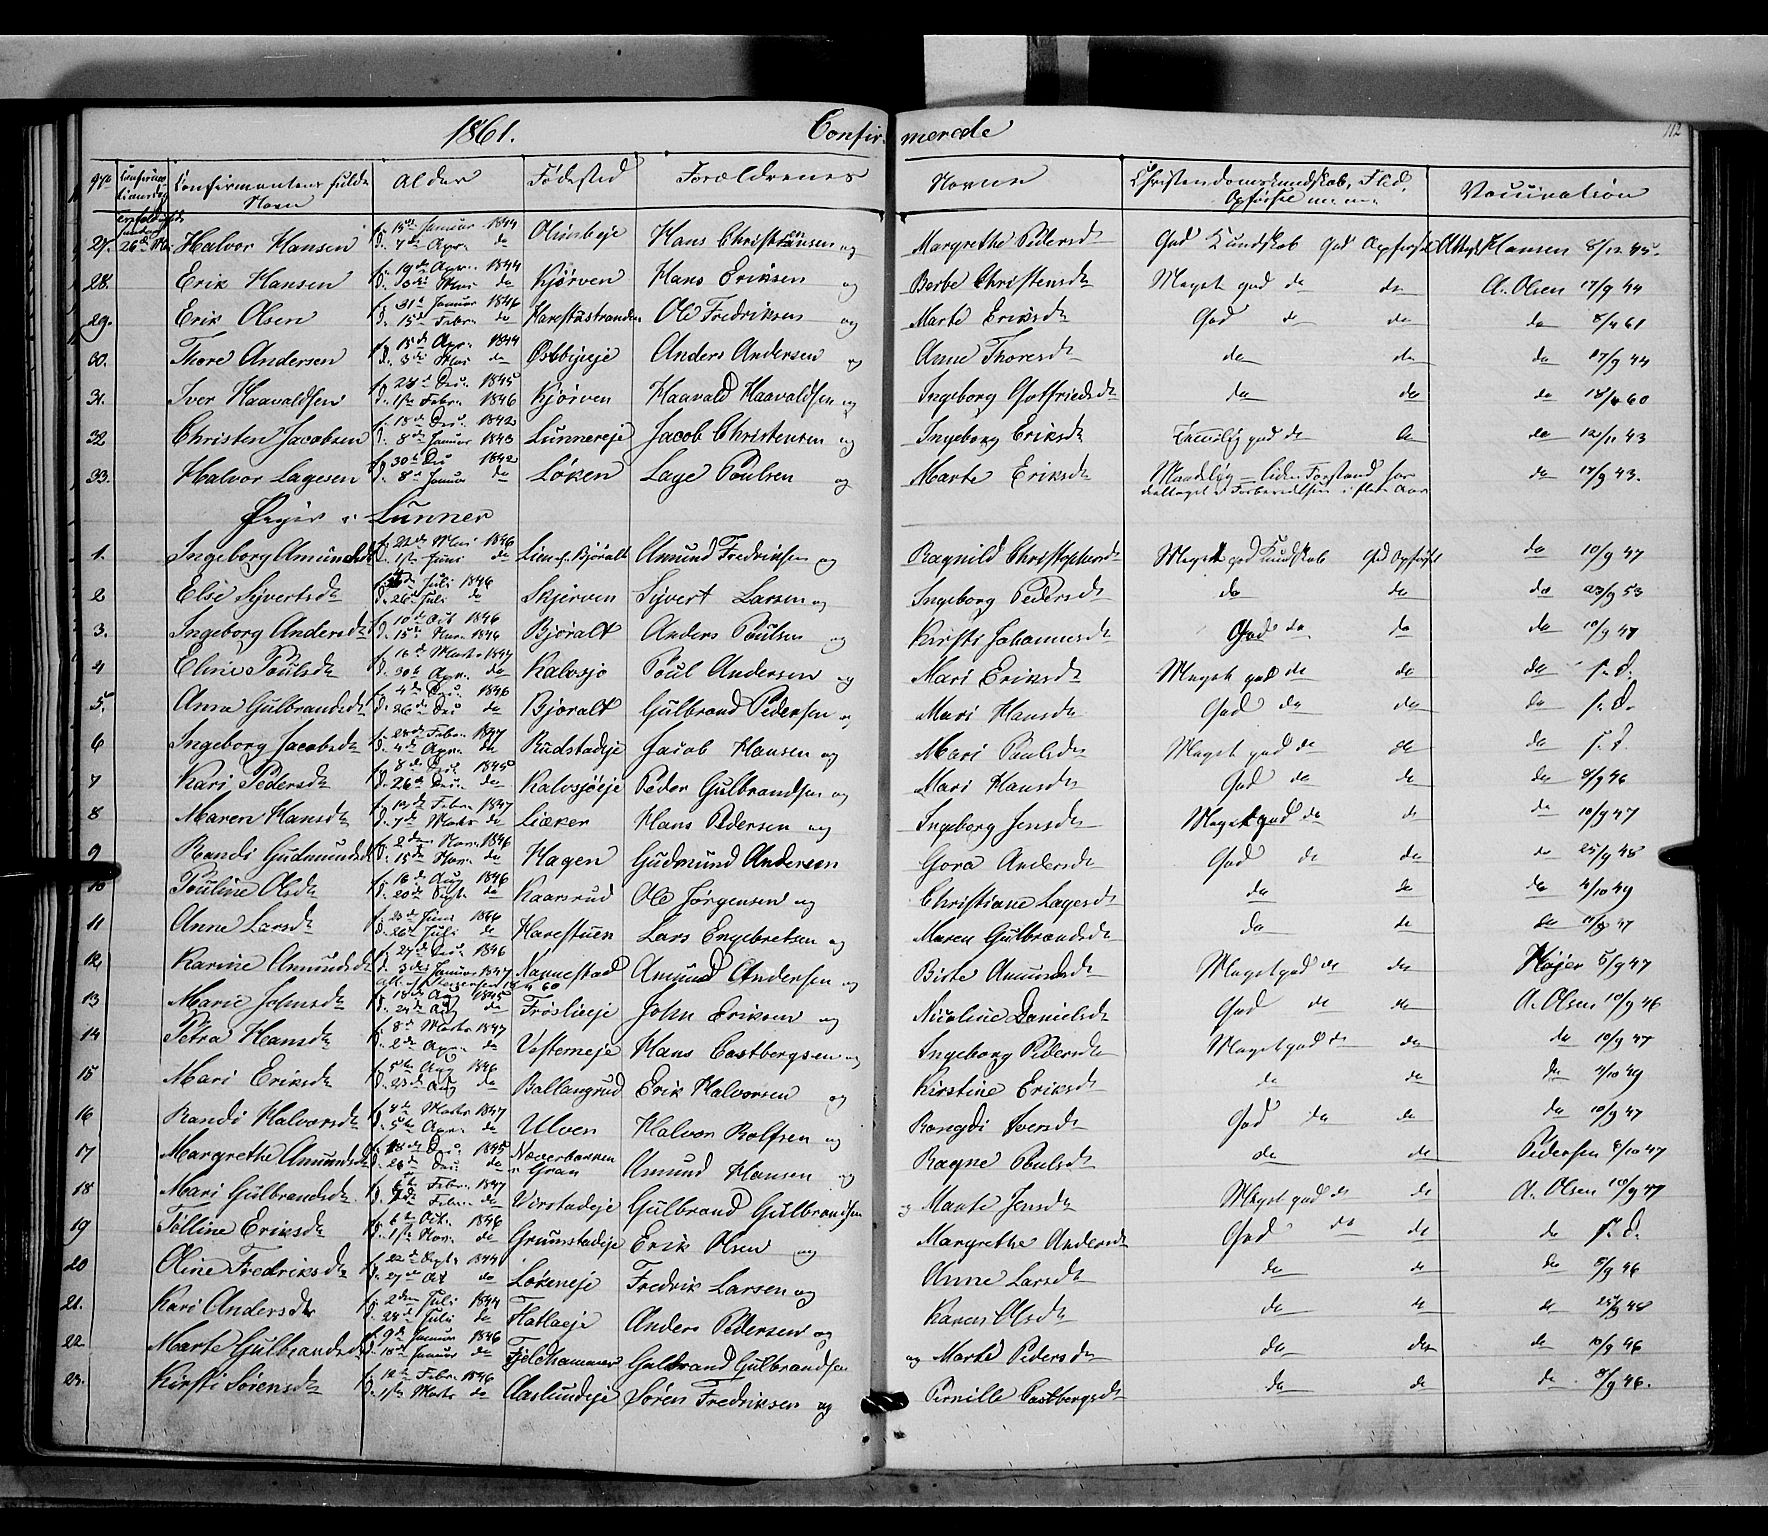 1861. Confirmerede 112
No Confirmationsdag Confirmantens fulde Navn Alder Fødested Forældrenes Navne Christendomskundskab, Flid, Opførsel m.m. Vaccination
27. 26de Mai Halvor Hansen f. Januar 1844 d. 7de Apr. do Hans Christiansen og Margrethe Pedersdr God Kundskab God Opførsel Hansen 8/12 45.
28. Erik Hansen f. 19de Apr. 1844 d. Mai do Kjørven Hans Eriksen og Berthe Christensdr Meget god do do A. Olsen 17/9 44
29. Erik Olsen f. 31te Januar 1846 d. 15de Febr. do Harestustranden Ole Fredriksen og Marte Eriksdr God do do do 61
30. Thore Andersen f. 15de Apr. 1844 d. 3die Mai do Anders Andersen og Anne Thoresdr do do do 17/9 44
31. Iver Haavaldsen f. Dec. 1845 d. 1ste Febr. 1846 Kjørven Haavald Haavaldsen og Ingeborg Gotfriedsdr do do do 60
32 Christen Jacobsen f. 18de Dec. 1842 d. 8de Januar 1843 Lunnereje Jacob Christensen og Ingeborg Eriksdr god do do do 12/11 43
33. Halvor Lagesen f. 30te Dec. 1842 d. 8de Januar do Løken Lage Poulsen og Marte Eriksdr Maadelig liden Forstand har do 43.
deeltaget i Forberedelsen i flere Aar
Piger i Lunner
1. Ingeborg Amundsdr f. Mai 1846 d. 1ste Juni do Bjøralt Amund Fredriksen og Ragnild Christophersdr Meget god Kundskab God Opførsel do 10/9 47
2 Else Syvertsdr f. Juli 1846 d. 26de Juli do Skjerven Syvert Larsen og Ingeborg Pedersdr do do do 53
3. Ingeborg Andersdr f. 10de Oct 1846 d. 15de Nov. 1846 Bjøralt Anders Poulsen og Kirsti Johannesdr God do do do 10/9 47
4 Eline Poulsdr f. 16de Marts 1847 d. Apr. do Kalvsjø Poul Andersen og Mari Eriksdr Meget god do do do s. d.
5. Anne Gulbrandsdr f. 4de Dec. 1846 d. 26de Dec do Bjøralt Gulbrand Pedersen og Mari Hansdr God do do do s. d.
6 Ingeborg Jacobsdr f. Febr. 1847 d. 4de Apr. do Rudstadeje Jacob Hansen og Mari Paulsdr Meget god do do do s. d.
7 Kari Pedersdr f. 8de Dec. 1845 d. 26de Dec. do Kalvsjøeje Peder Gulbrandsen og Mari Hansdr God do do do 46
8 Maren Hansdr f. Febr. 1847 d. 7de Marts do Liaker Hans Pedersen og Ingeborg Jensdr Meget god do do do 10/9 47
9 Randi Gudmundsdr f. 2den Nov. 1846 d. 15de Nov. do Hagen Gudmund Andersen Gora Andersdr God do do do 25/9 48
10 Pouline Olsdr f. 16de Aug 1846 d. 20de Sept. do Kaarsrud Ole Jørgensen og Christiane Lagesdr do do do 4/10 49
11 Anne Larsdr f. Juni 1846 d. 26de Juli do Harestuen Lars Engebretsen og Maren Gulbrandsdr do do do 47
12 Karine Amundsdr f. Dec. 1846 d. 3die Januar 1847 Nannestad Amund Andersen og Birte Amundsdr Meget god do do Højer 5/9 47
13 Marie Johnsdr f. 18de Aug 1845 d. Aug do Frøslieeje John Eriksen og Nicoline Danielsdr God do do A. Olsen 10/9 46
14 Petra Hansdr f. 8de Marts 1847 d. 2de Apr. do Vesterneje Hans Castbergsen og Ingeborg Pedersdr Meget god do do do 10/9 47
15 Mari Eriksdr f. 5te Aug 1846 d. 23de Aug do Ballangrud Erik Halvorsen og Kirstine Eriksdr do do do 4/10 49
16 Randi Halvorsdr f. 4de Marts 1847 d. 5te Apr. do Ulven Halvor Rolfsen og Rangdi Iversdr God do do do 10/9 47
17 Margrethe Amundsdr f. Dec. 1845 d. 26de Dec. do i Gran Amund Hansen og Ragne Poulsdr do do Pedersen 8/10 47
18 Mari Gulbrandsdr f. Febr. 1847 d. Febr. do Virstadeje Gulbrand Gulbrandsen og Marte Jensdr Meget god do do A. Olsen 10/9 47
19 Tolline Eriksdr f. 6te Oct. 1846 d. 1ste Nov. do Grumstadeje Erik Olsen og Margrethe Andersdr God do do do s. d.
20 Oline Fredriksdr f. 22de Sept. d. 27de Oct do Løkeneje Fredrik Larsen og Anne Larsdr do do do 46
21. Kari Andersdr f. 2den Juli 1844 d. 28de Juli do Flatlaeje Anders Pedersen og Karen Olsdr do do do
22. Marte Gulbrandsdr f. 9de Januar 1846 d. 18de Januar do Fjeldhammer Gulbrand Gulbrandsen og Marte Pedersdr do do do 46
23. Kirsti Sørensdr f. 12te Febr. 1846 d. 1ste Marts do Aaslundeje Søren Fredriksen og Pernille Castbergsdr do do do 8/9 46.